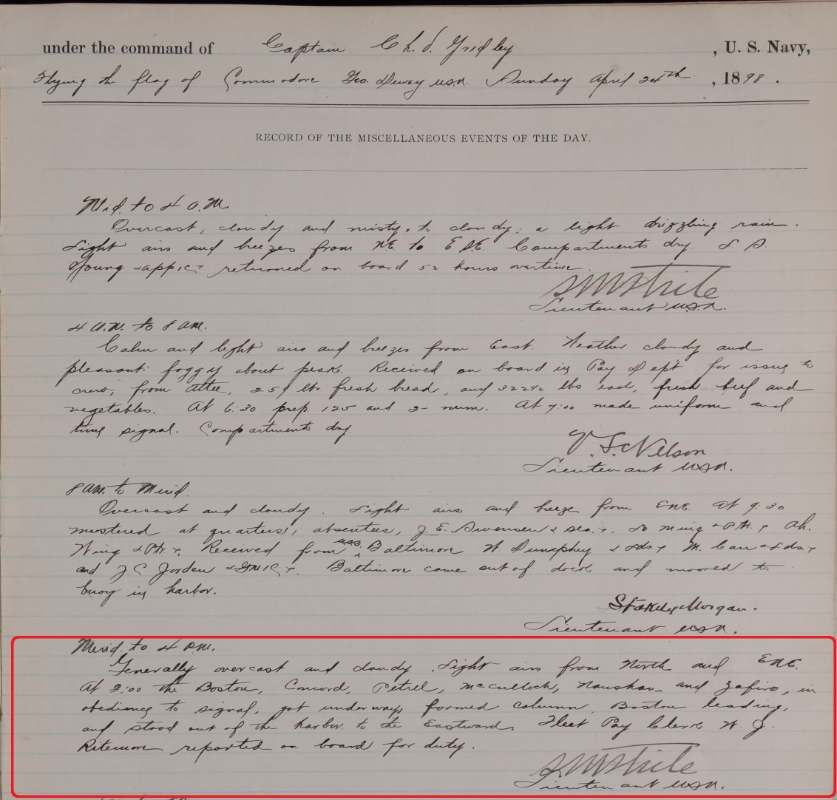 under the command of Captain Ch. V. Gridley, U. S. Navy,
Flying the flag of Commodore Geo. Dewey USN. Sunday April 24th, 1898.
RECORD OF THE MISCELLANEOUS EVENTS OF THE DAY.
Mid. to 4 A.M.
Overcast, cloudy and misty, to cloudy, a light drizzling rain.
Light airs and breezes from NE to ENE. Compartments dry.
Young returned on board 52 hours overtime.
Lieutenant USN.
4 A.M. to 8 AM.
Calm and light airs and breezes from East. Weather cloudy and
pleasant foggy about peaks. Received on board in Pay Dept for issue to
crew, from 251 lbs fresh bread, and fresh beef and
vegetables. At 6.30 prep 125 and At 7:00 made uniform and
time signal. Compartments dry
V. S. Nelson
Lieutenant USN.
8 AM. to Merid.
Overcast and cloudy. Light airs and breeze from ENE. At 9.30
mustered at quarters, absentees, J. E.
Wing Received from USS Baltimore W. M.
and J. C. Jordan Baltimore came out of dock and moored to
buoy in harbor.
Stokely Morgan.
Lieutenant USN.
Merid to 4 P.M.
Generally overcast and cloudy. Light airs from North and ENE.
At 2:00 the Boston, Concord, Petrel, McCulloch, Nanshan and Zafiro, in
obedience to signal, got underway, formed column, Boston leading,
and stood out of the harbor to the Eastward. Fleet Pay Clerk W. J.
reported on board for duty.
Lieutenant USN.